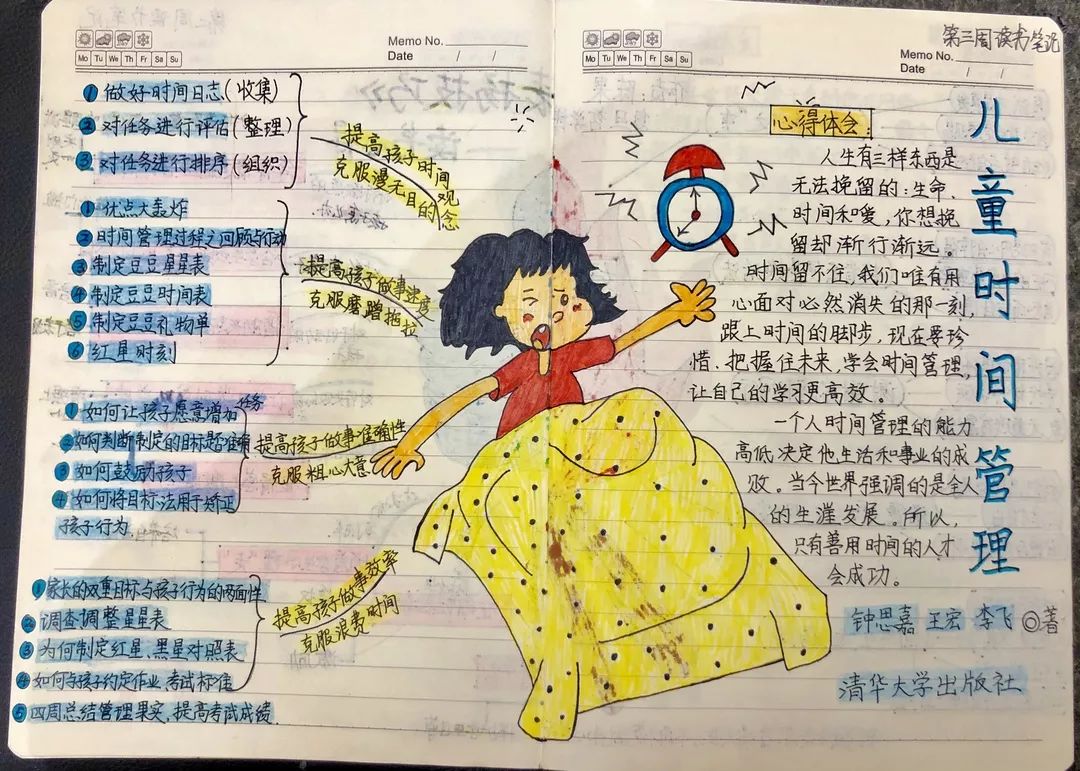 Memo No.
Mo Tu We Th Fr Sa Su
Date / /
① 做好时间日志(收集)
② 对任务进行评估(整理)
③ 对任务进行排序(组织)
提高孩子时间观念
克服漫无目的
① 优点大轰炸
② 时间管理过程之回顾与行动
③ 制定豆豆星星表
④ 制定豆豆时间表
⑤ 制定豆豆礼物单
⑥ 红星时刻
提高孩子做事速度
克服磨蹭拖拉
① 如何让孩子愿意增加任务
② 如何判断制定的目标是否准确
③ 如何鼓励孩子
④ 如何将目标法用于矫正
孩子行为
提高孩子做事准确性
克服粗心大意
① 家长的双重目标与孩子行为的两面性
② 调查调整星星表
③ 为何制定红星、黑星对照表
④ 如何与孩子约定作业、考试标准
⑤ 四周总结管理果实,提高考试成绩
提高孩子做事效率
克服浪费时间
第三周读书笔记
Memo No.
Mo Tu We Th Fr Sa Su
Date / /
儿童时间管理
心得体会:
人生有三样东西是
无法挽留的:生命、
时间和爱,你想挽
留却渐行渐远。
时间留不住,我们唯有用
心面对必然消失的那一刻,
跟上时间的脚步,现在要珍
惜、把握住未来,学会时间管理,
让自己的学习更高效。
一个人时间管理的能力
高低决定他生活和事业的成
败。当今世界强调的是全人
的生涯发展。所以,
只有善用时间的人才
会成功。
钟思嘉 王宏 李飞 ◎著
清华大学出版社